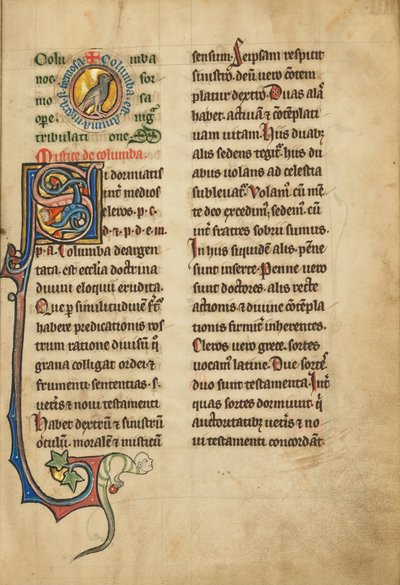 Colu mba
nos for
mo sa
ope nig
tribulati one
Mistice de columba.
Si dormiatis
int̄ medios
cleros. p. c.
d. ⁊ p. d. e. in
p. a. Columba deargen
tata. est ecc̄lia doctrina
diuini eloquii erudita.
Que ꝑ similitudinē
habere predicationis ros
trum ratione diuisum. q̇
grana colligat ordei ⁊
frumenti sententias. s.
uetīs ⁊ noui testamenti.
Habet dextrū ⁊ sinistrū
oculū. moralē ⁊ misticū
sensum. Seipsam respicit
sinistro. deū uero cōtem
platur dextro. Duas alas
habet. actiuā ⁊ cōtēpli
uam uitam. Hiis duabꝫ
alis sedens tegit᷑. hiis du
abus uolans ad celestia
subleuat᷑. Volam᷒. cū mē
te deo excedim᷒. sedem᷒. cū
int̄ fratres sobrii sumus.
In hiis siquidē alis. pēne
sunt inserte. Penne uero
sunt doctores. alis recte
actionis ⁊ diuine cōtēpla
tionis firmit̄ inherentes.
Cleros uero grece. sortes
uocam᷒ latine. Due sortes
duo sunt testamenta. Int̄
quas sortes dormiunt. q̇
auctoritatibꝫ uetīs ⁊ no
ui testamenti concordant.